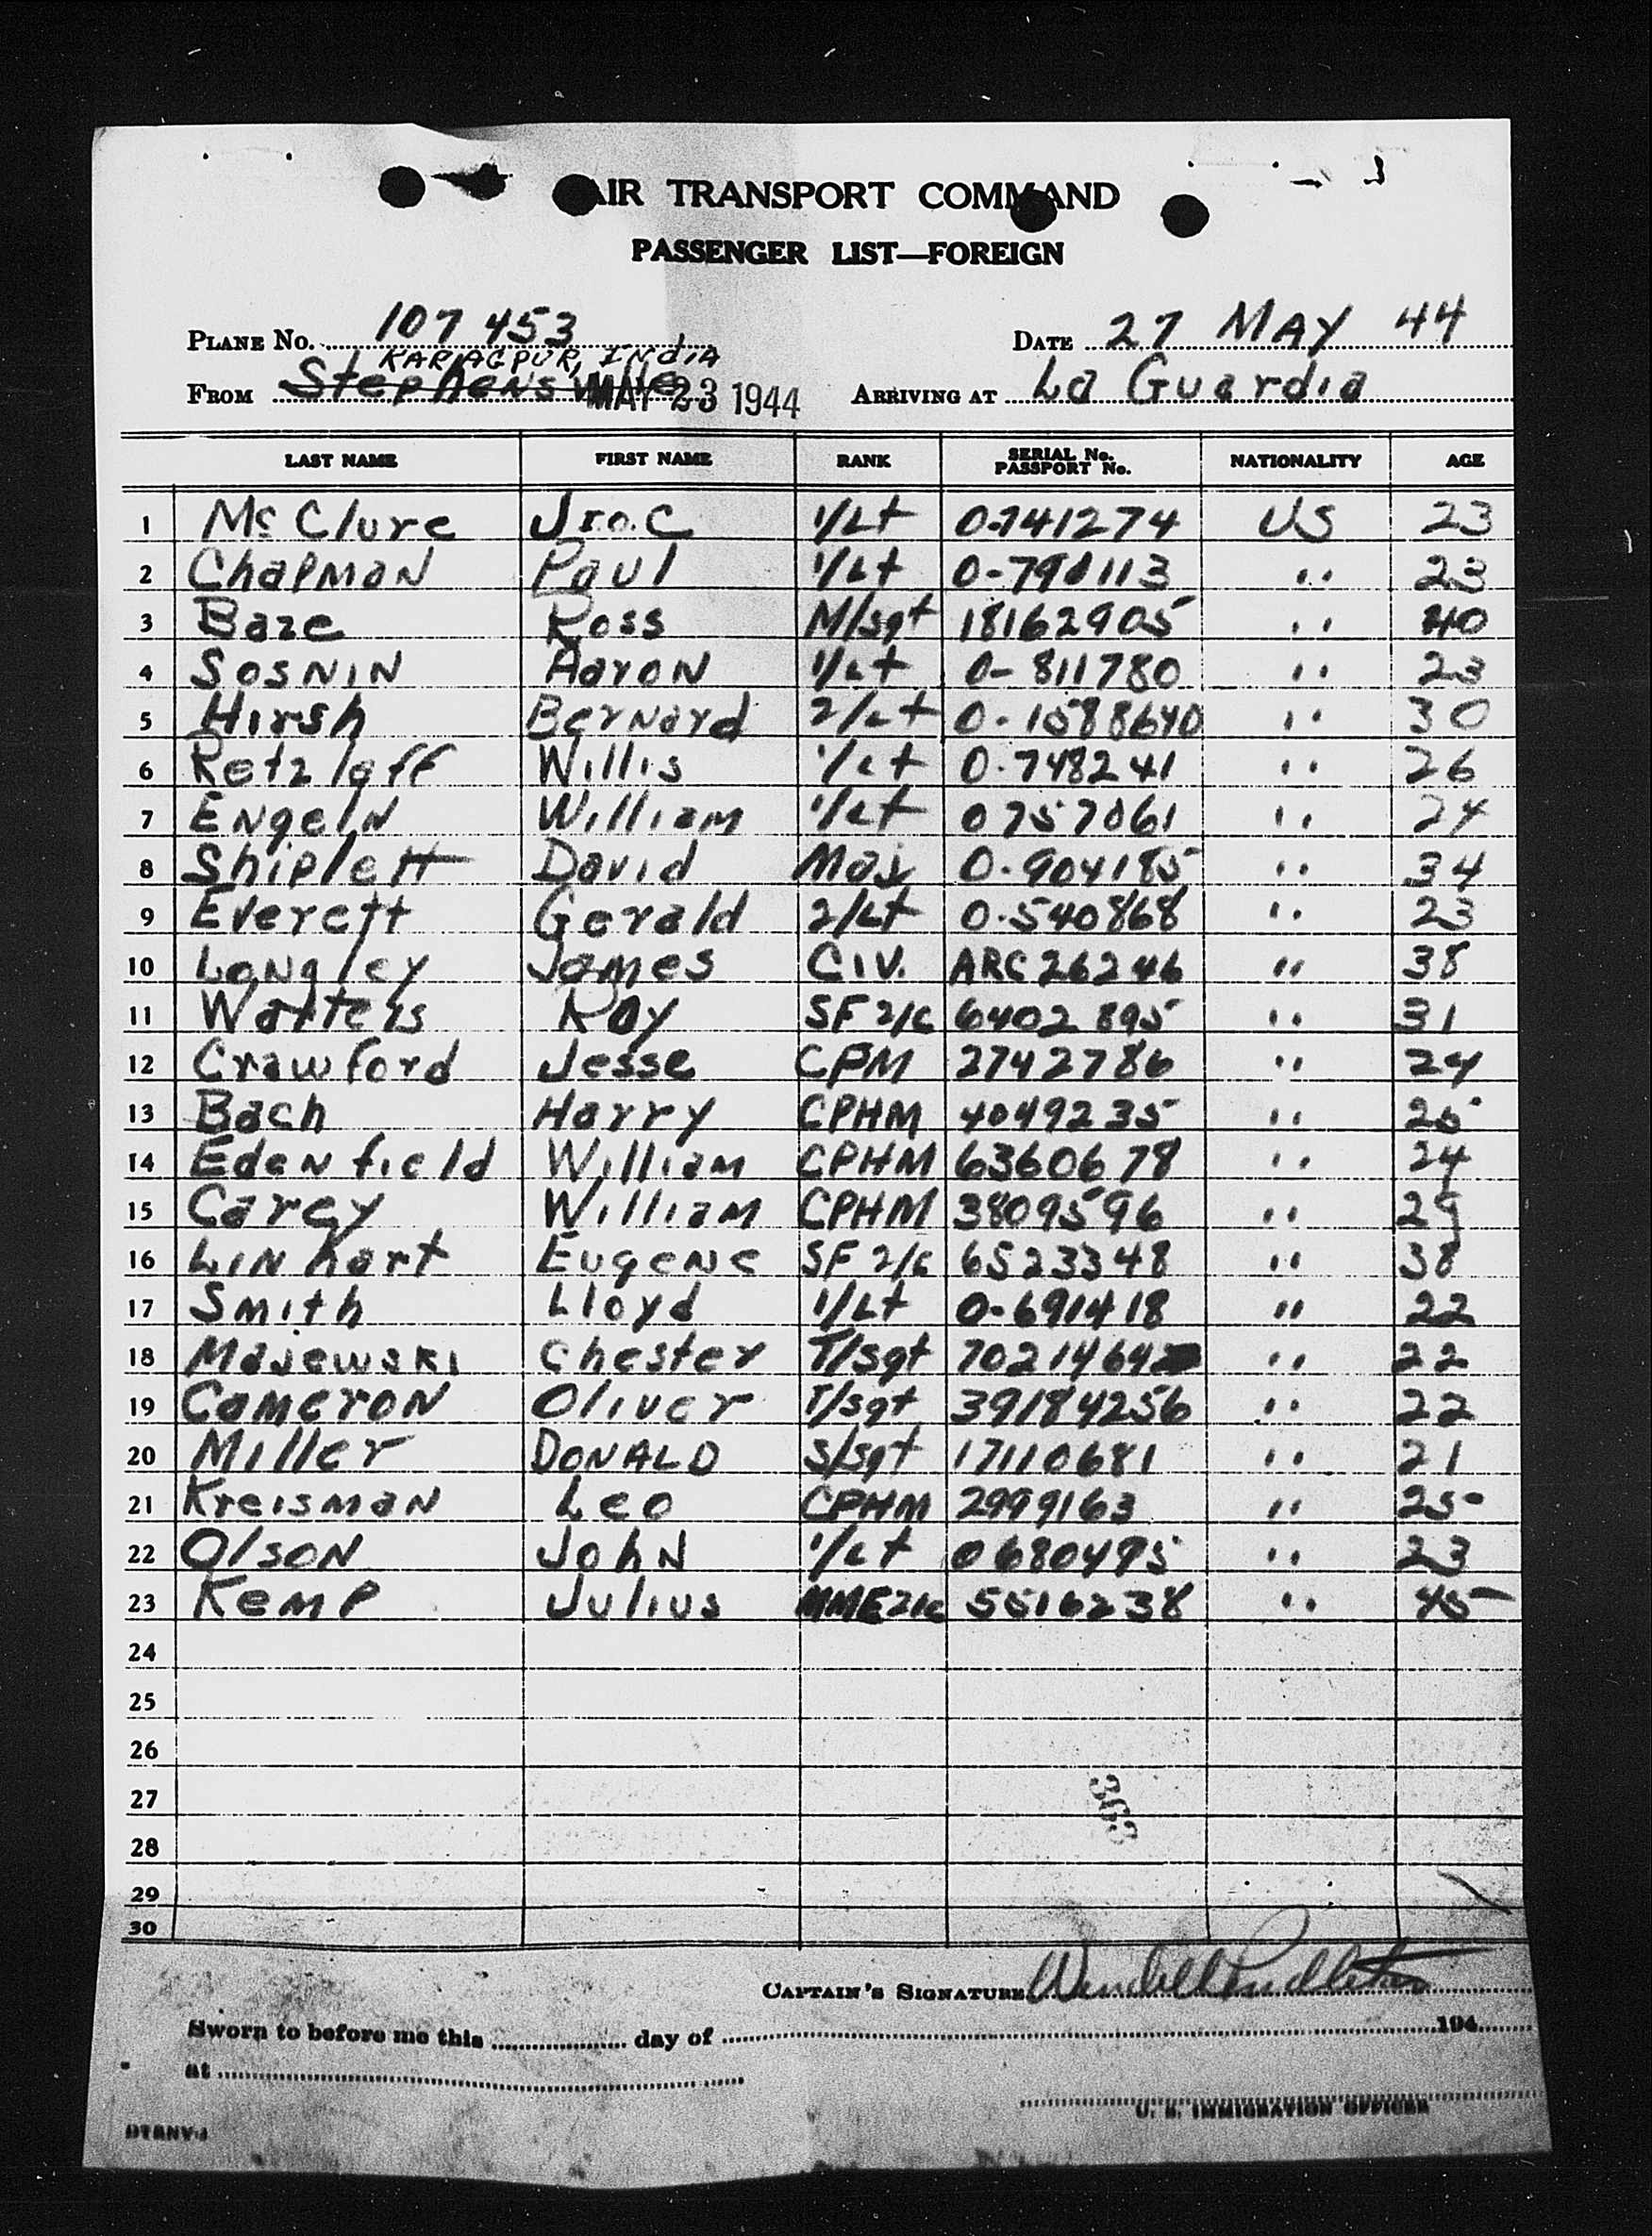 AIR TRANSPORT COMMAND
PASSENGER LIST—FOREIGN
PLANE No. 107453 DATE 27 MAY 44
KARAGPUR, INDIA
FROM Stephensville MAY 23 1944 ARRIVING AT La Guardia
LAST NAME FIRST NAME RANK SERIAL No. PASSPORT No. NATIONALITY AGE
1 McClure Jno. C 1/Lt 0-741274 US 23
2 Chapman Paul 1/Lt 0-790113 '' 23
3 Baze Ross M/sgt 18162905 '' 40
4 Sosnin Aaron 1/Lt 0-811780 '' 23
5 Hirsh Bernard 2/Lt 0-1588640 '' 30
6 Retzlaff Willis 1/Lt 0-748241 '' 26
7 Engeln William 1/Lt 0757061 '' 24
8 Shiplett David Maj 0-904185 '' 34
9 Everett Gerald 2/Lt 0-540868 '' 23
10 Longley James CIV. ARC26246 '' 38
11 Roy SF 2/c 6402895 '' 31
12 Crawford Jesse CPM 2742786 '' 24
13 Bach Harry CPHM 4049235 '' 25
14 Edenfield William CPHM 6360678 '' 24
15 Carey William CPHM 3809596 '' 29
16 Linhart Eugene SF 2/c 6523348 '' 38
17 Smith Lloyd 1/Lt 0-691418 '' 22
18 Majewski Chester T/sgt '' 22
19 Cameron Oliver T/sgt 39184256 '' 22
20 Miller DONALD S/sgt 17110681 '' 21
21 Kreisman Leo CPHM 2999163 '' 25
22 Olson John 1/Lt 0680495 '' 23
23 Kemp Julius MME2/c 5516238 '' 45
24
25
26
27
28
29
30
363
CAPTAIN'S SIGNATURE Wendell Pendleton
Sworn to before me this day of 194
at
U. S. IMMIGRATION OFFICER